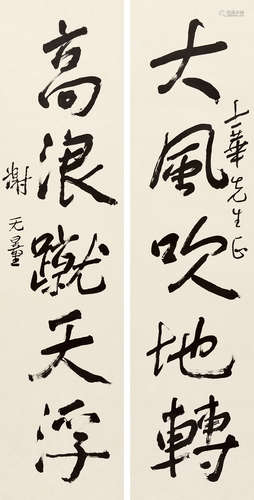 大風吹地轉
士華先生正
高浪蹴天浮
謝无量